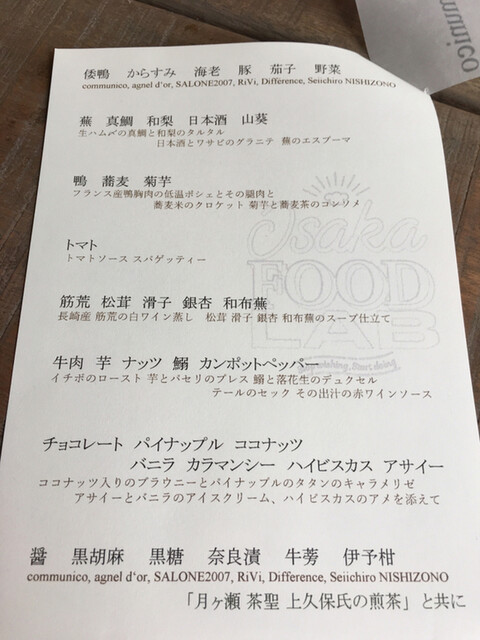 mmunico
倭鴨 からすみ 海老 豚 茄子 野菜
communico, agnel d'or, SALONE2007, RiVi, Différence, Seiichiro NISHIZONO
蕪 真鯛 和梨 日本酒 山葵
生ハム〆の真鯛と和梨のタルタル
日本酒とワサビのグラニテ 蕪のエスプーマ
鴨 蕎麦 菊芋
フランス産鴨胸肉の低温ポシェとその腿肉と
蕎麦米のクロケット 菊芋と蕎麦茶のコンソメ
トマト
トマトソース スパゲッティー
Osaka
FOOD
LAB
筋荒 松茸 滑子 銀杏 和布蕪
長崎産 筋荒の白ワイン蒸し 松茸 滑子 銀杏 和布蕪のスープ仕立て
牛肉 芋 ナッツ 鰯 カンポットペッパー
イチボのロースト 芋とバセリのプレス 鰯と落花生のデュクセル
テールのセック その出汁の赤ワインソース
チョコレート パイナップル ココナッツ
バニラ カラマンシー ハイビスカス アサイー
ココナッツ入りのブラウニーとパイナップルのタタンのキャラメリゼ
アサイーとバニラのアイスクリーム、ハイビスカスのアメを添えて
醤 黒胡麻 黒糖 奈良漬 牛蒡 伊予柑
communico, agnel d'or, SALONE2007, RiVi, Différence, Seiichiro NISHIZONO
「月ヶ瀬 茶聖 上久保氏の煎茶」と共に